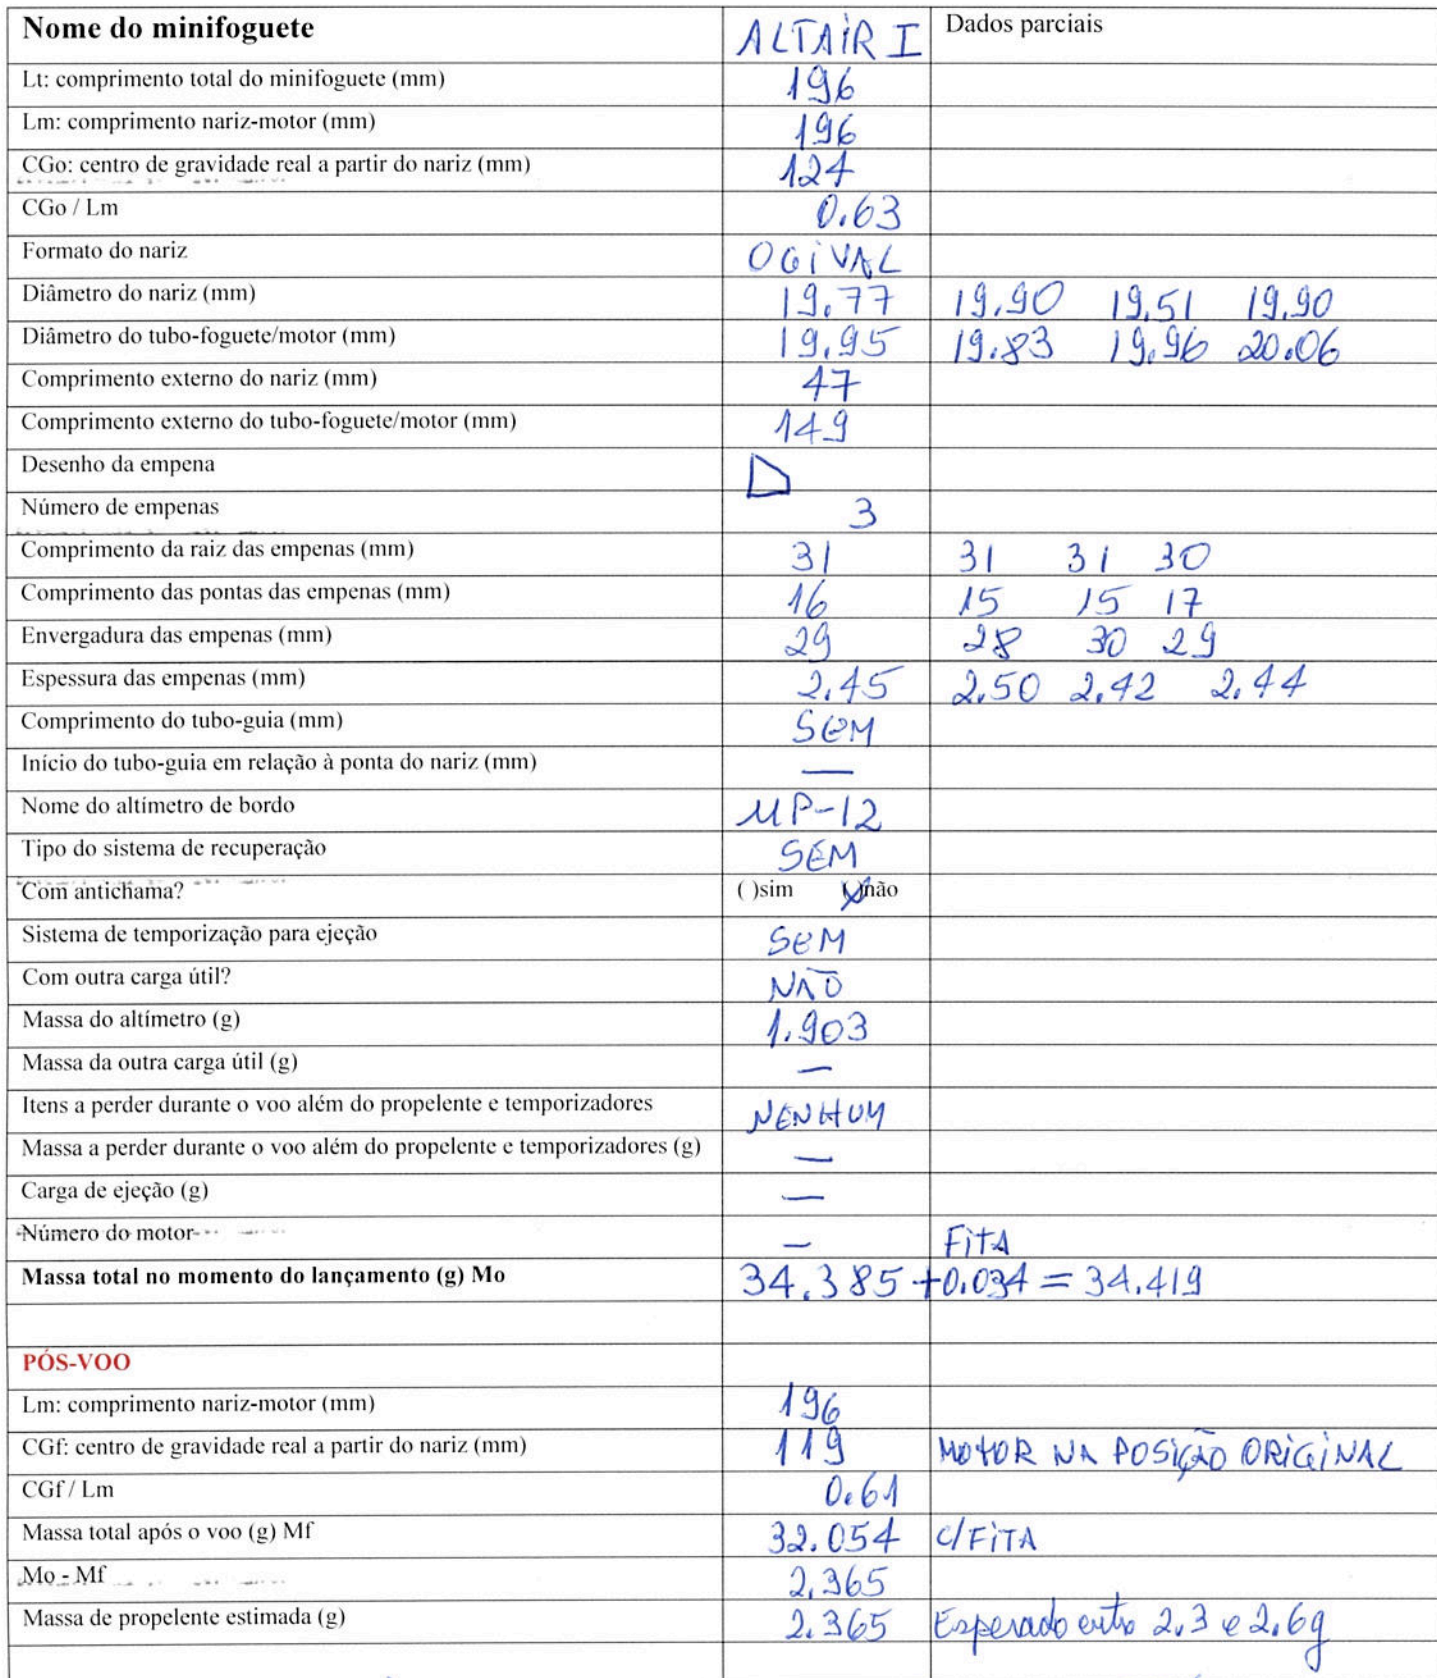 Nome do minifoguete ALTAIR I Dados parciais
Lt: comprimento total do minifoguete (mm) 196
Lm: comprimento nariz-motor (mm) 196
CGo: centro de gravidade real a partir do nariz (mm) 124
CGo / Lm 0.63
Formato do nariz OGIVAL
Diâmetro do nariz (mm) 19.77 19.90 19.51 19.90
Diâmetro do tubo-foguete/motor (mm) 19.95 19.83 19.96 20.06
Comprimento externo do nariz (mm) 47
Comprimento externo do tubo-foguete/motor (mm) 149
Desenho da empena
Número de empenas 3
Comprimento da raiz das empenas (mm) 31 31 31 30
Comprimento das pontas das empenas (mm) 16 15 15 17
Envergadura das empenas (mm) 29 28 30 29
Espessura das empenas (mm) 2.45 2.50 2.42 2.44
Comprimento do tubo-guia (mm) SEM
Início do tubo-guia em relação à ponta do nariz (mm) —
Nome do altímetro de bordo MP-12
Tipo do sistema de recuperação SEM
Com antichama? ( )sim (X)não
Sistema de temporização para ejeção SEM
Com outra carga útil? NÃO
Massa do altímetro (g) 1.903
Massa da outra carga útil (g) —
Itens a perder durante o voo além do propelente e temporizadores NENHUM
Massa a perder durante o voo além do propelente e temporizadores (g) —
Carga de ejeção (g) —
Número do motor — FITA
Massa total no momento do lançamento (g) Mo 34.385 + 0.034 = 34.419
PÓS-VOO
Lm: comprimento nariz-motor (mm) 196
CGf: centro de gravidade real a partir do nariz (mm) 119 MOTOR NA POSIÇÃO ORIGINAL
CGf / Lm 0.61
Massa total após o voo (g) Mf 32.054 C/FITA
Mo - Mf 2.365
Massa de propelente estimada (g) 2.365 Esperado entre 2.3 e 2.6g